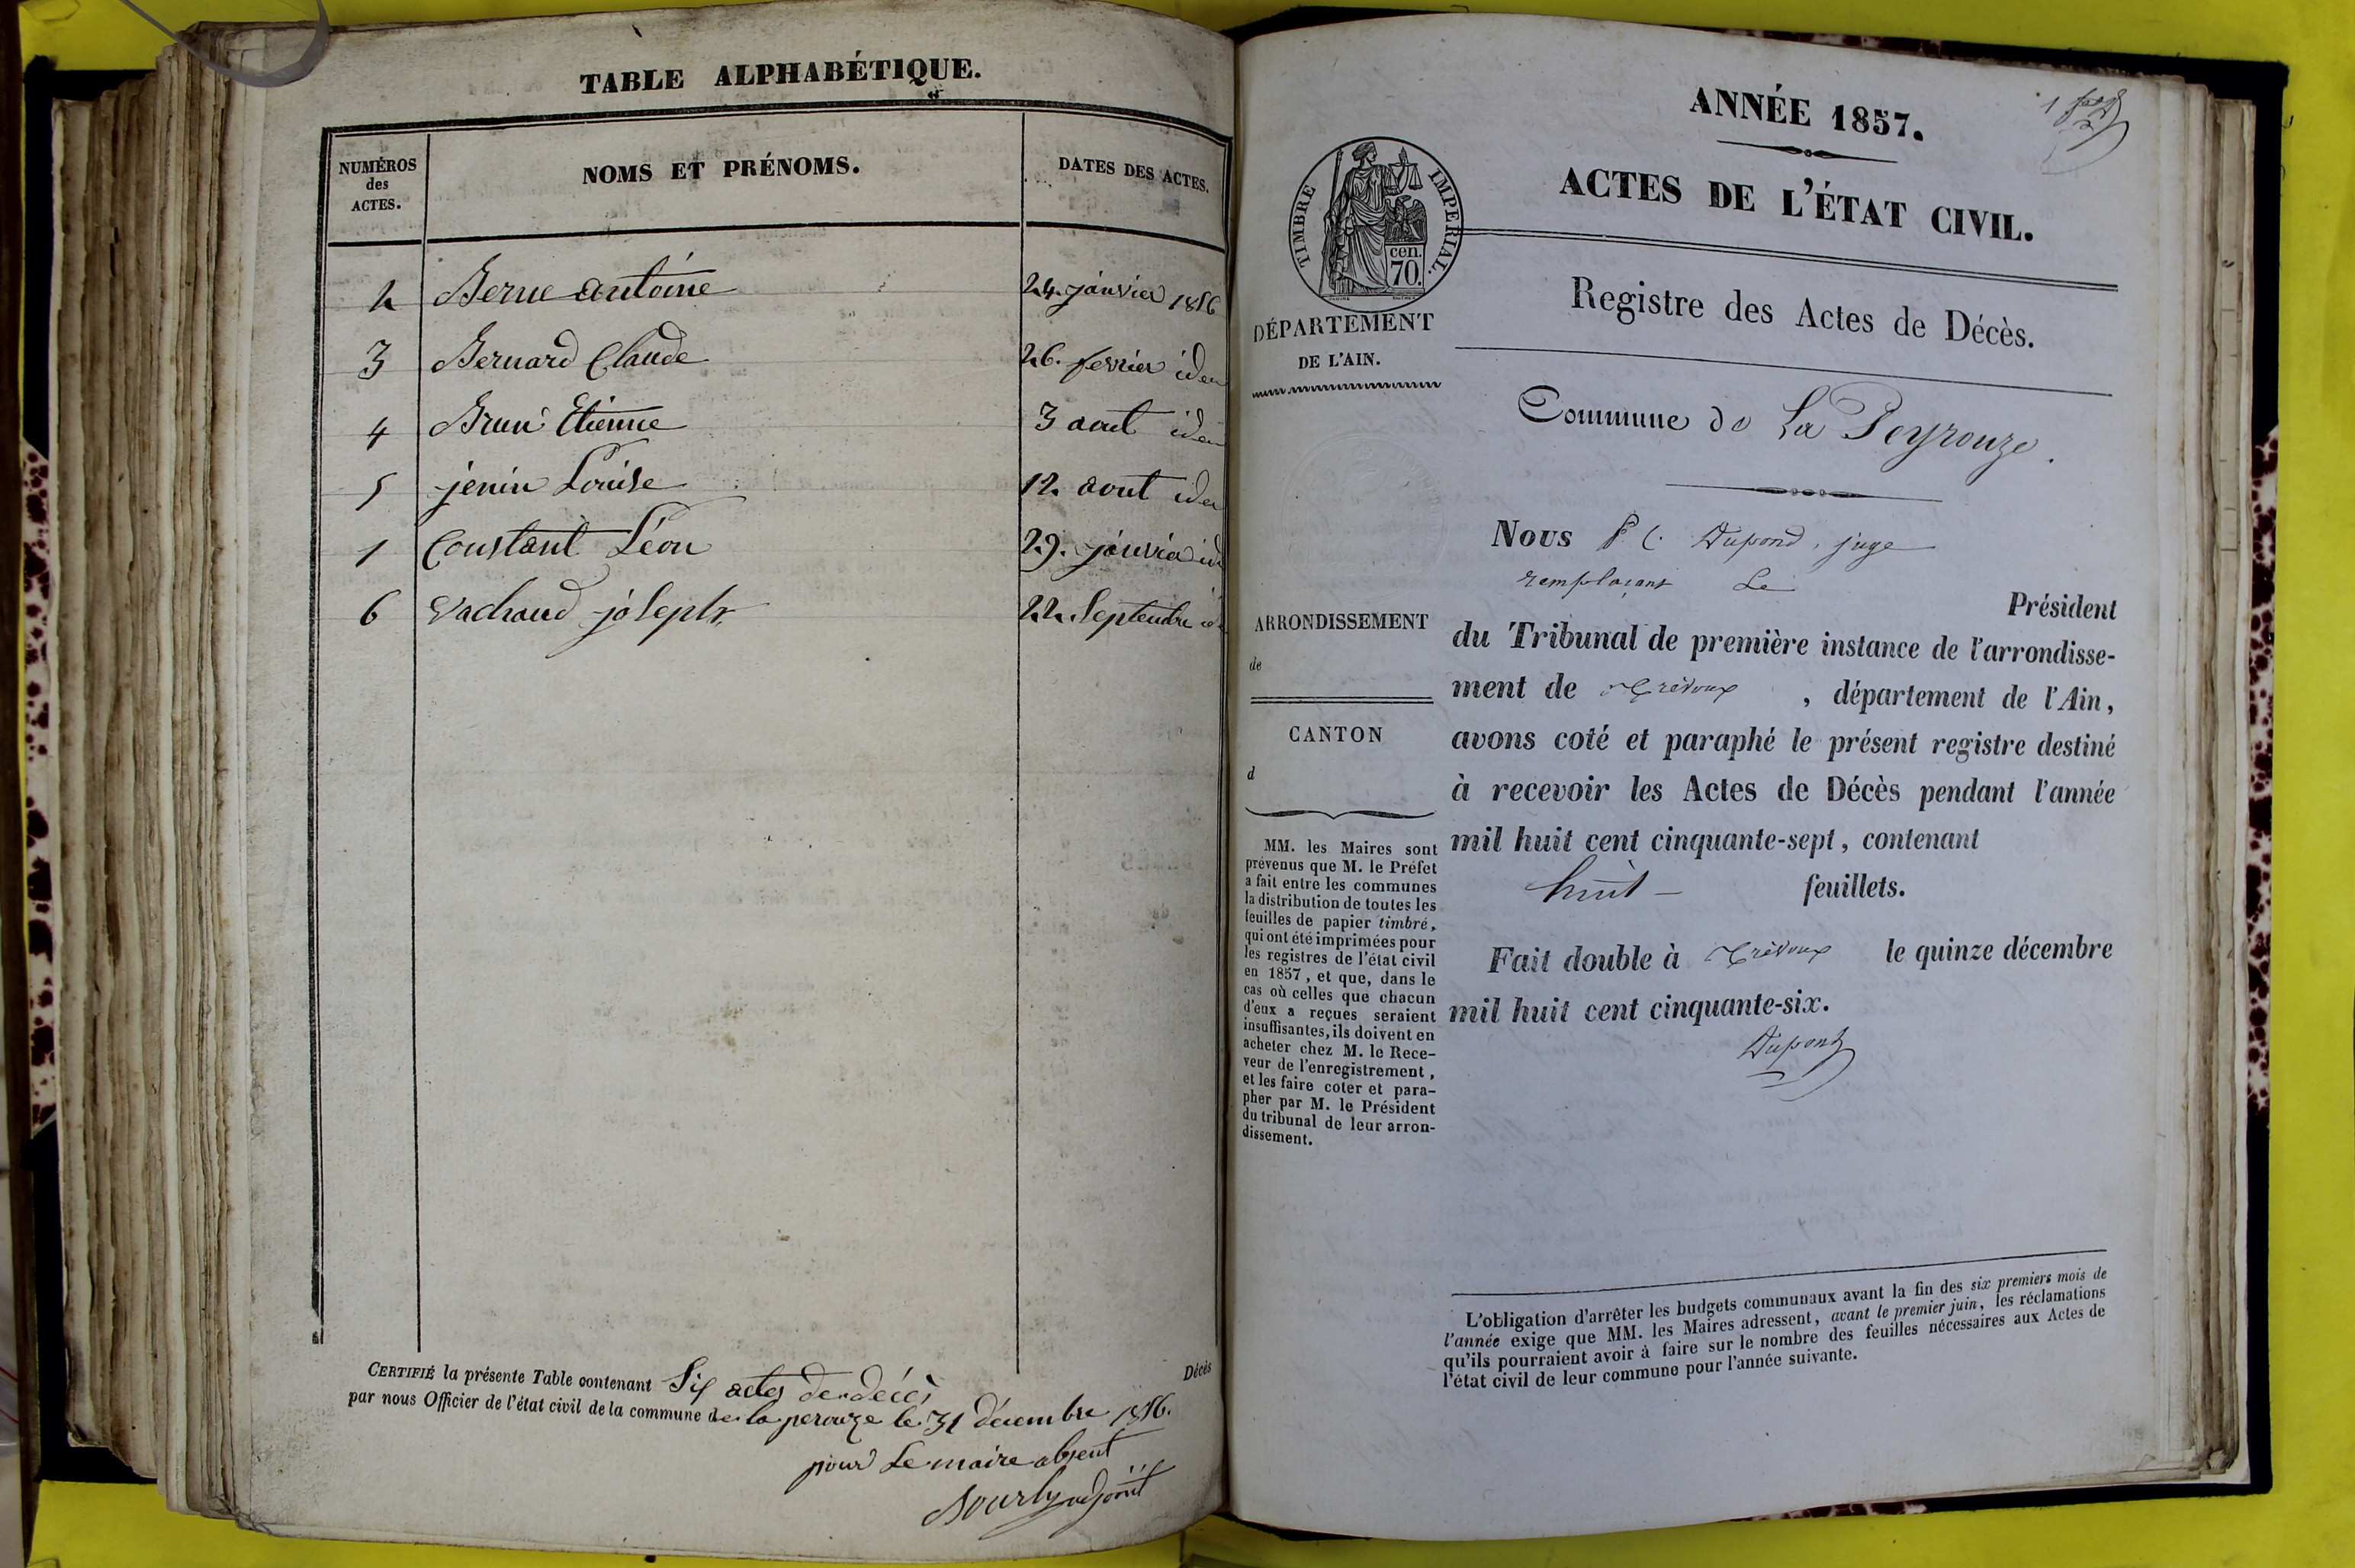 TABLE ALPHABÉTIQUE.
NUMÉROS
des
ACTES.
NOMS ET PRÉNOMS.
DATES DES ACTES.
2 Berne antoine 24. janvier 1856
3 Bernard Claude 26. fevrier idem
4 Brun Etienne 3 aout idem
5 jenin Louise 12. aout idem
1 Constant Léon 29. janvier id
6 Vachaud joseph 22. Septembre id
CERTIFIÉ la présente Table contenant Six actes de décès Décès
par nous Officier de l'état civil de la commune de la perouze le 31 décembre 1856.
pour Le maire absent
adjoint
ANNÉE 1857.
1
ACTES DE L'ÉTAT CIVIL.
TIMBRE IMPERIAL.
cen.
70.
DÉPARTEMENT
DE L'AIN.
Registre des Actes de Décès.
Commune de La Peyrouze.
ARRONDISSEMENT
de
CANTON
d
MM. les Maires sont
prévenus que M. le Préfet
a fait entre les communes
la distribution de toutes les
feuilles de papier timbré,
qui ont été imprimées pour
les registres de l'état civil
en 1857, et que, dans le
cas où celles que chacun
d'eux a reçues seraient
insuffisantes, ils doivent en
acheter chez M. le Rece-
veur de l'enregistrement,
et les faire coter et para-
pher par M. le Président
du tribunal de leur arron-
dissement.
Nous P C. Dupond, juge
remplaçant Le
Président
du Tribunal de première instance de l'arrondisse-
ment de Trévoux, département de l'Ain,
avons coté et paraphé le présent registre destiné
à recevoir les Actes de Décès pendant l'année
mil huit cent cinquante-sept, contenant
huit feuillets.
Fait double à Trévoux le quinze décembre
mil huit cent cinquante-six.
Dupond
L'obligation d'arrêter les budgets communaux avant la fin des six premiers mois de
l'année exige que MM. les Maires adressent, avant le premier juin, les réclamations
qu'ils pourraient avoir à faire sur le nombre des feuilles nécessaires aux Actes de
l'état civil de leur commune pour l'année suivante.